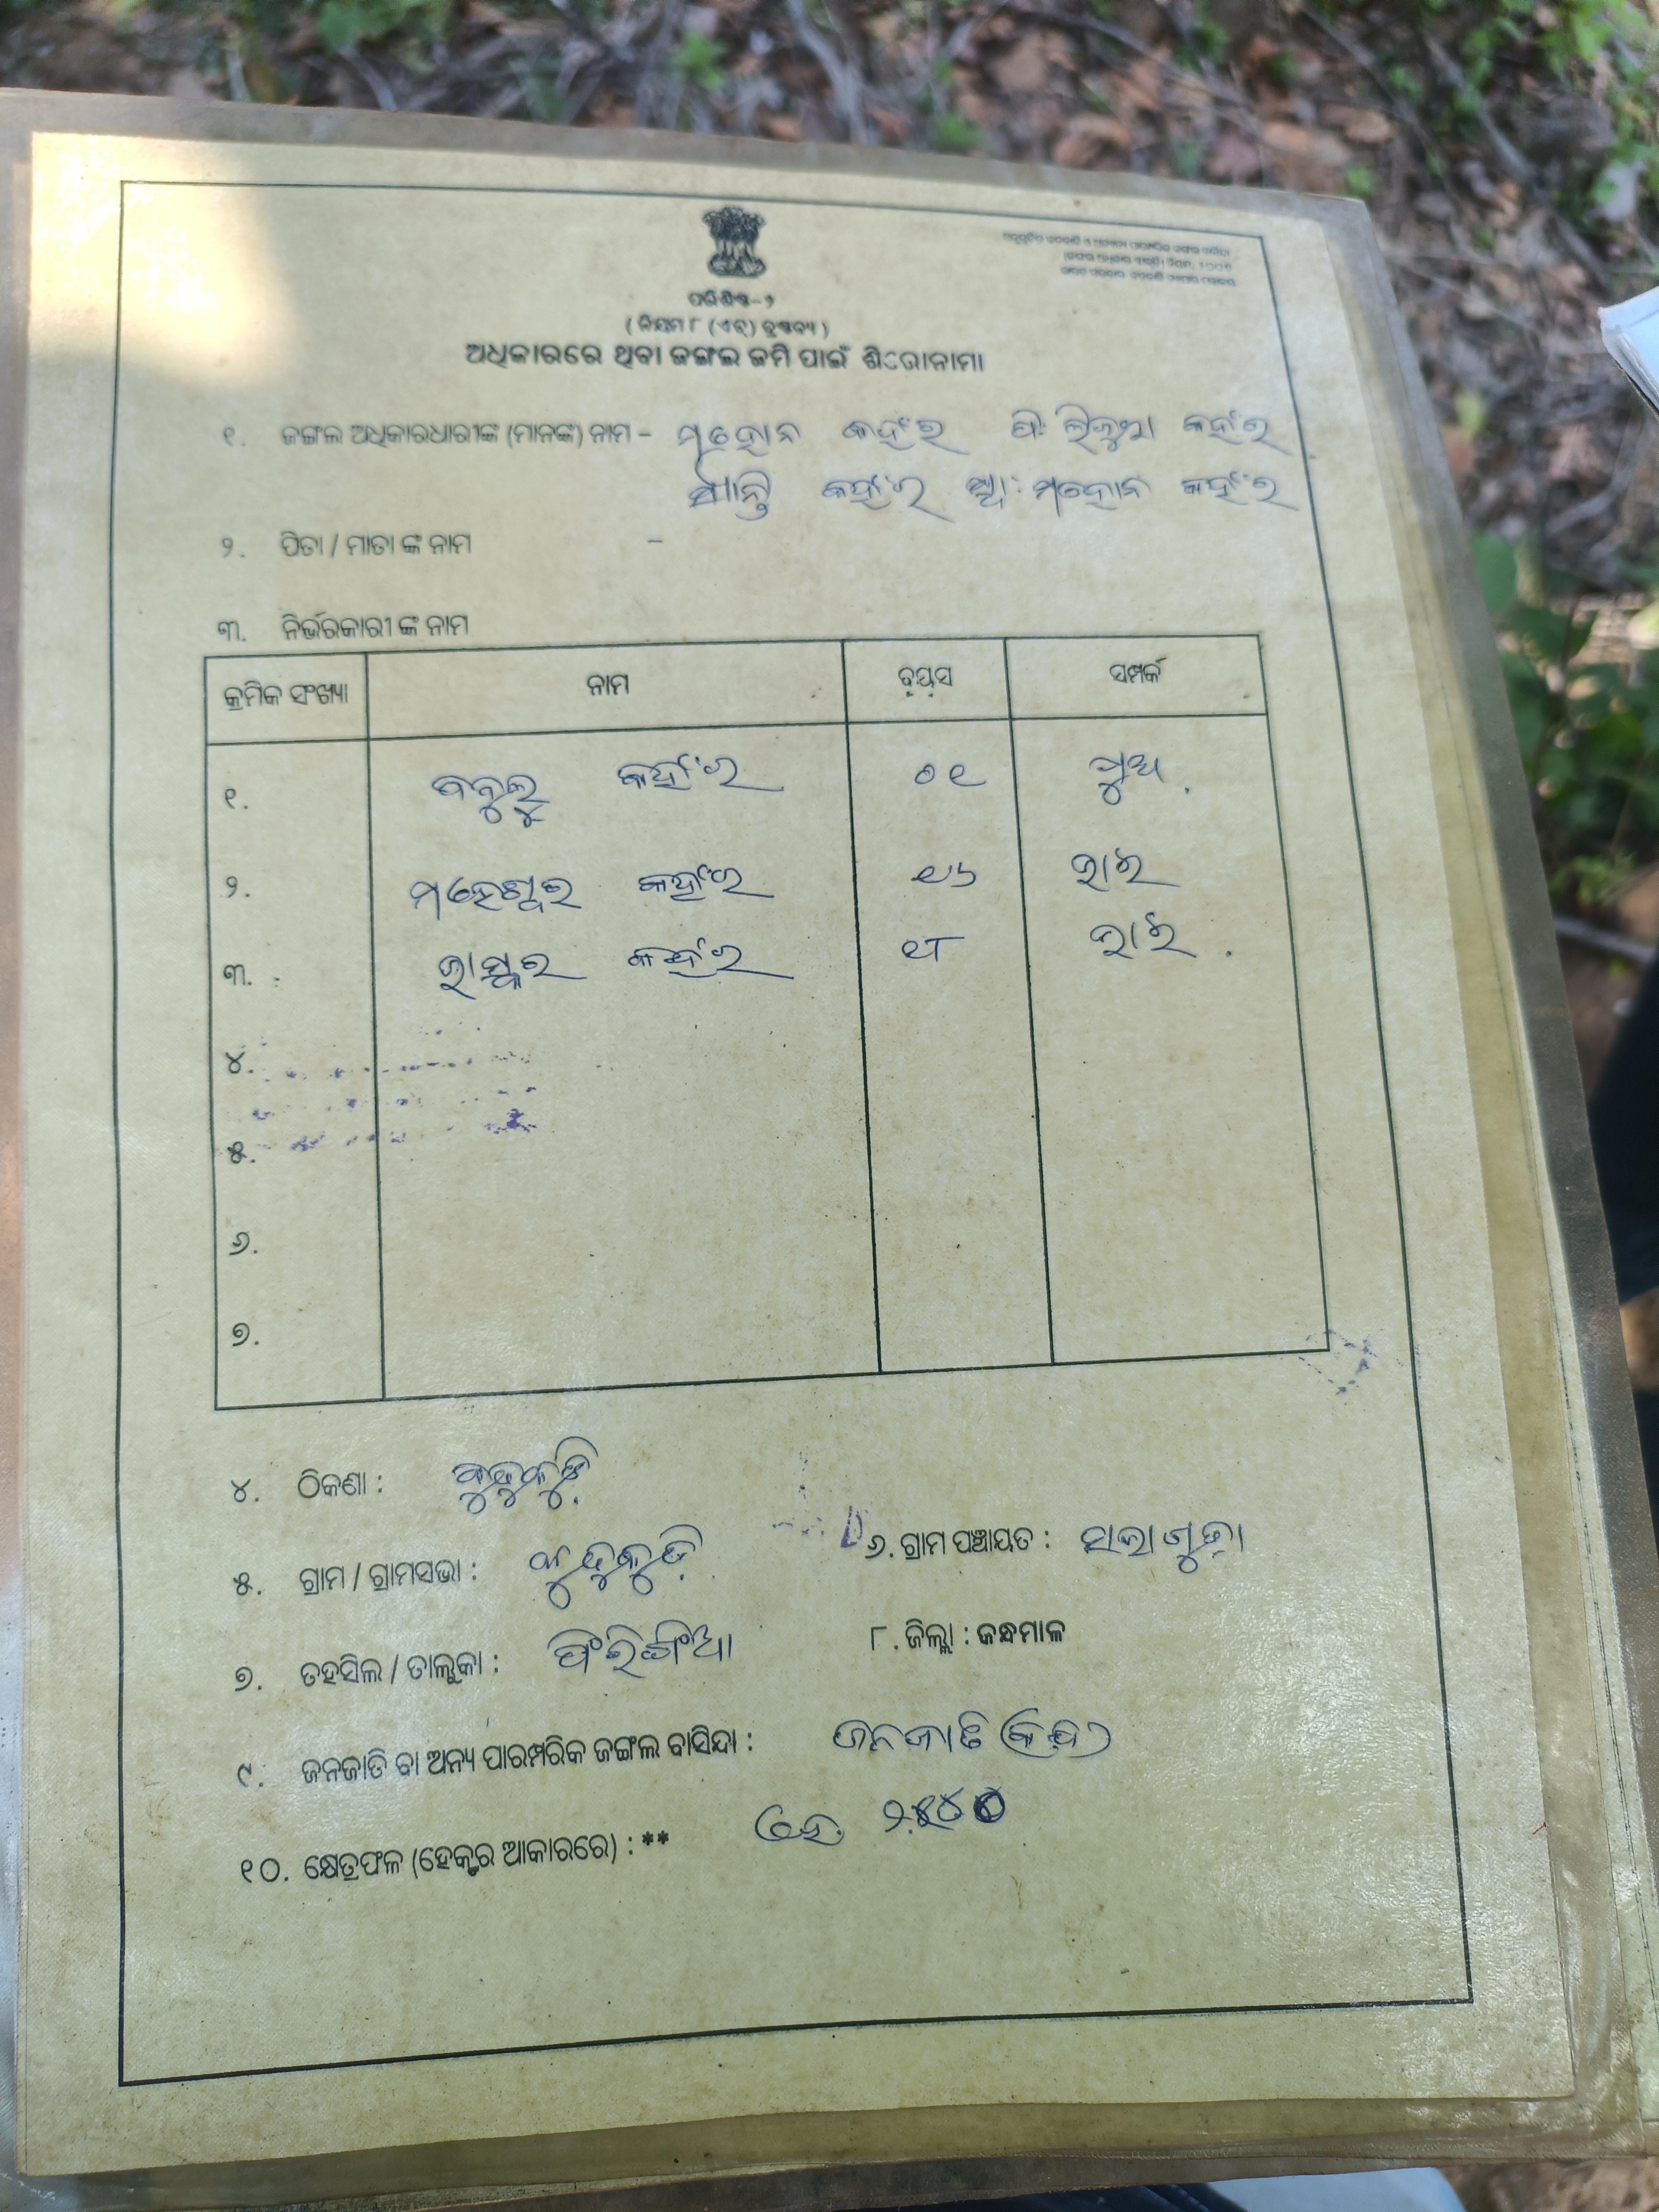 ଅନୁସୂଚିତ ଜନଜାତି ଓ ଅନ୍ୟାନ୍ୟ ପାରମ୍ପରିକ ଜଙ୍ଗଲ ବାସିନ୍ଦା
ପରିଶିଷ୍ଟ-୨
(ନିୟମ ୮ (ଏଚ୍) ଦ୍ରଷ୍ଟବ୍ୟ)
ଅଧିକାରରେ ଥିବା ଜଙ୍ଗଲ ଜମି ପାଇଁ ଶିରୋନାମା
୧. ଜଙ୍ଗଲ ଅଧିକାରଧାରୀଙ୍କ (ମାନଙ୍କ) ନାମ – ମହୋନ କହଁର ପି: କହଁର
ଶାନ୍ତି କହଁର ସ୍ୱା: ମହୋନ କହଁର
୨. ପିତା / ମାତା ଙ୍କ ନାମ –
୩. ନିର୍ଭରକାରୀ ଙ୍କ ନାମ
କ୍ରମିକ ସଂଖ୍ୟା ନାମ ବୟସ ସମ୍ପର୍କ
୧. ବବୁଲୁ କହଁର ୦୧ ପୁଅ
୨. ମହେଶ୍ୱର କହଁର ୧୬ ଭାଇ
୩. ଭାସ୍କର କହଁର ୧୮ ଭାଇ
୪.
୫.
୬.
୭.
୪. ଠିକଣା :
୫. ଗ୍ରାମ / ଗ୍ରାମସଭା : ୬. ଗ୍ରାମ ପଞ୍ଚାୟତ : ସାଲାଗୁଡ଼ା
୭. ତହସିଲ / ତାଲୁକା : ଫିରିଙ୍ଗିଆ ୮. ଜିଲ୍ଲା : କନ୍ଧମାଳ
୯. ଜନଜାତି ବା ଅନ୍ୟ ପାରମ୍ପରିକ ଜଙ୍ଗଲ ବାସିନ୍ଦା : ଜନଜାତି (କନ୍ଧ)
୧୦. କ୍ଷେତ୍ରଫଳ (ହେକ୍ଟର ଆକାରରେ) : ** ହେ. ୨.୫୪୦